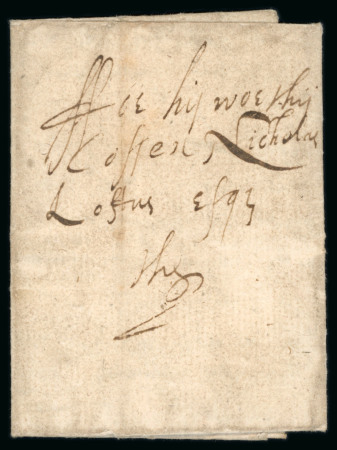 ffor his worthy
Cossen Nicholas
Loftus esqr
thes